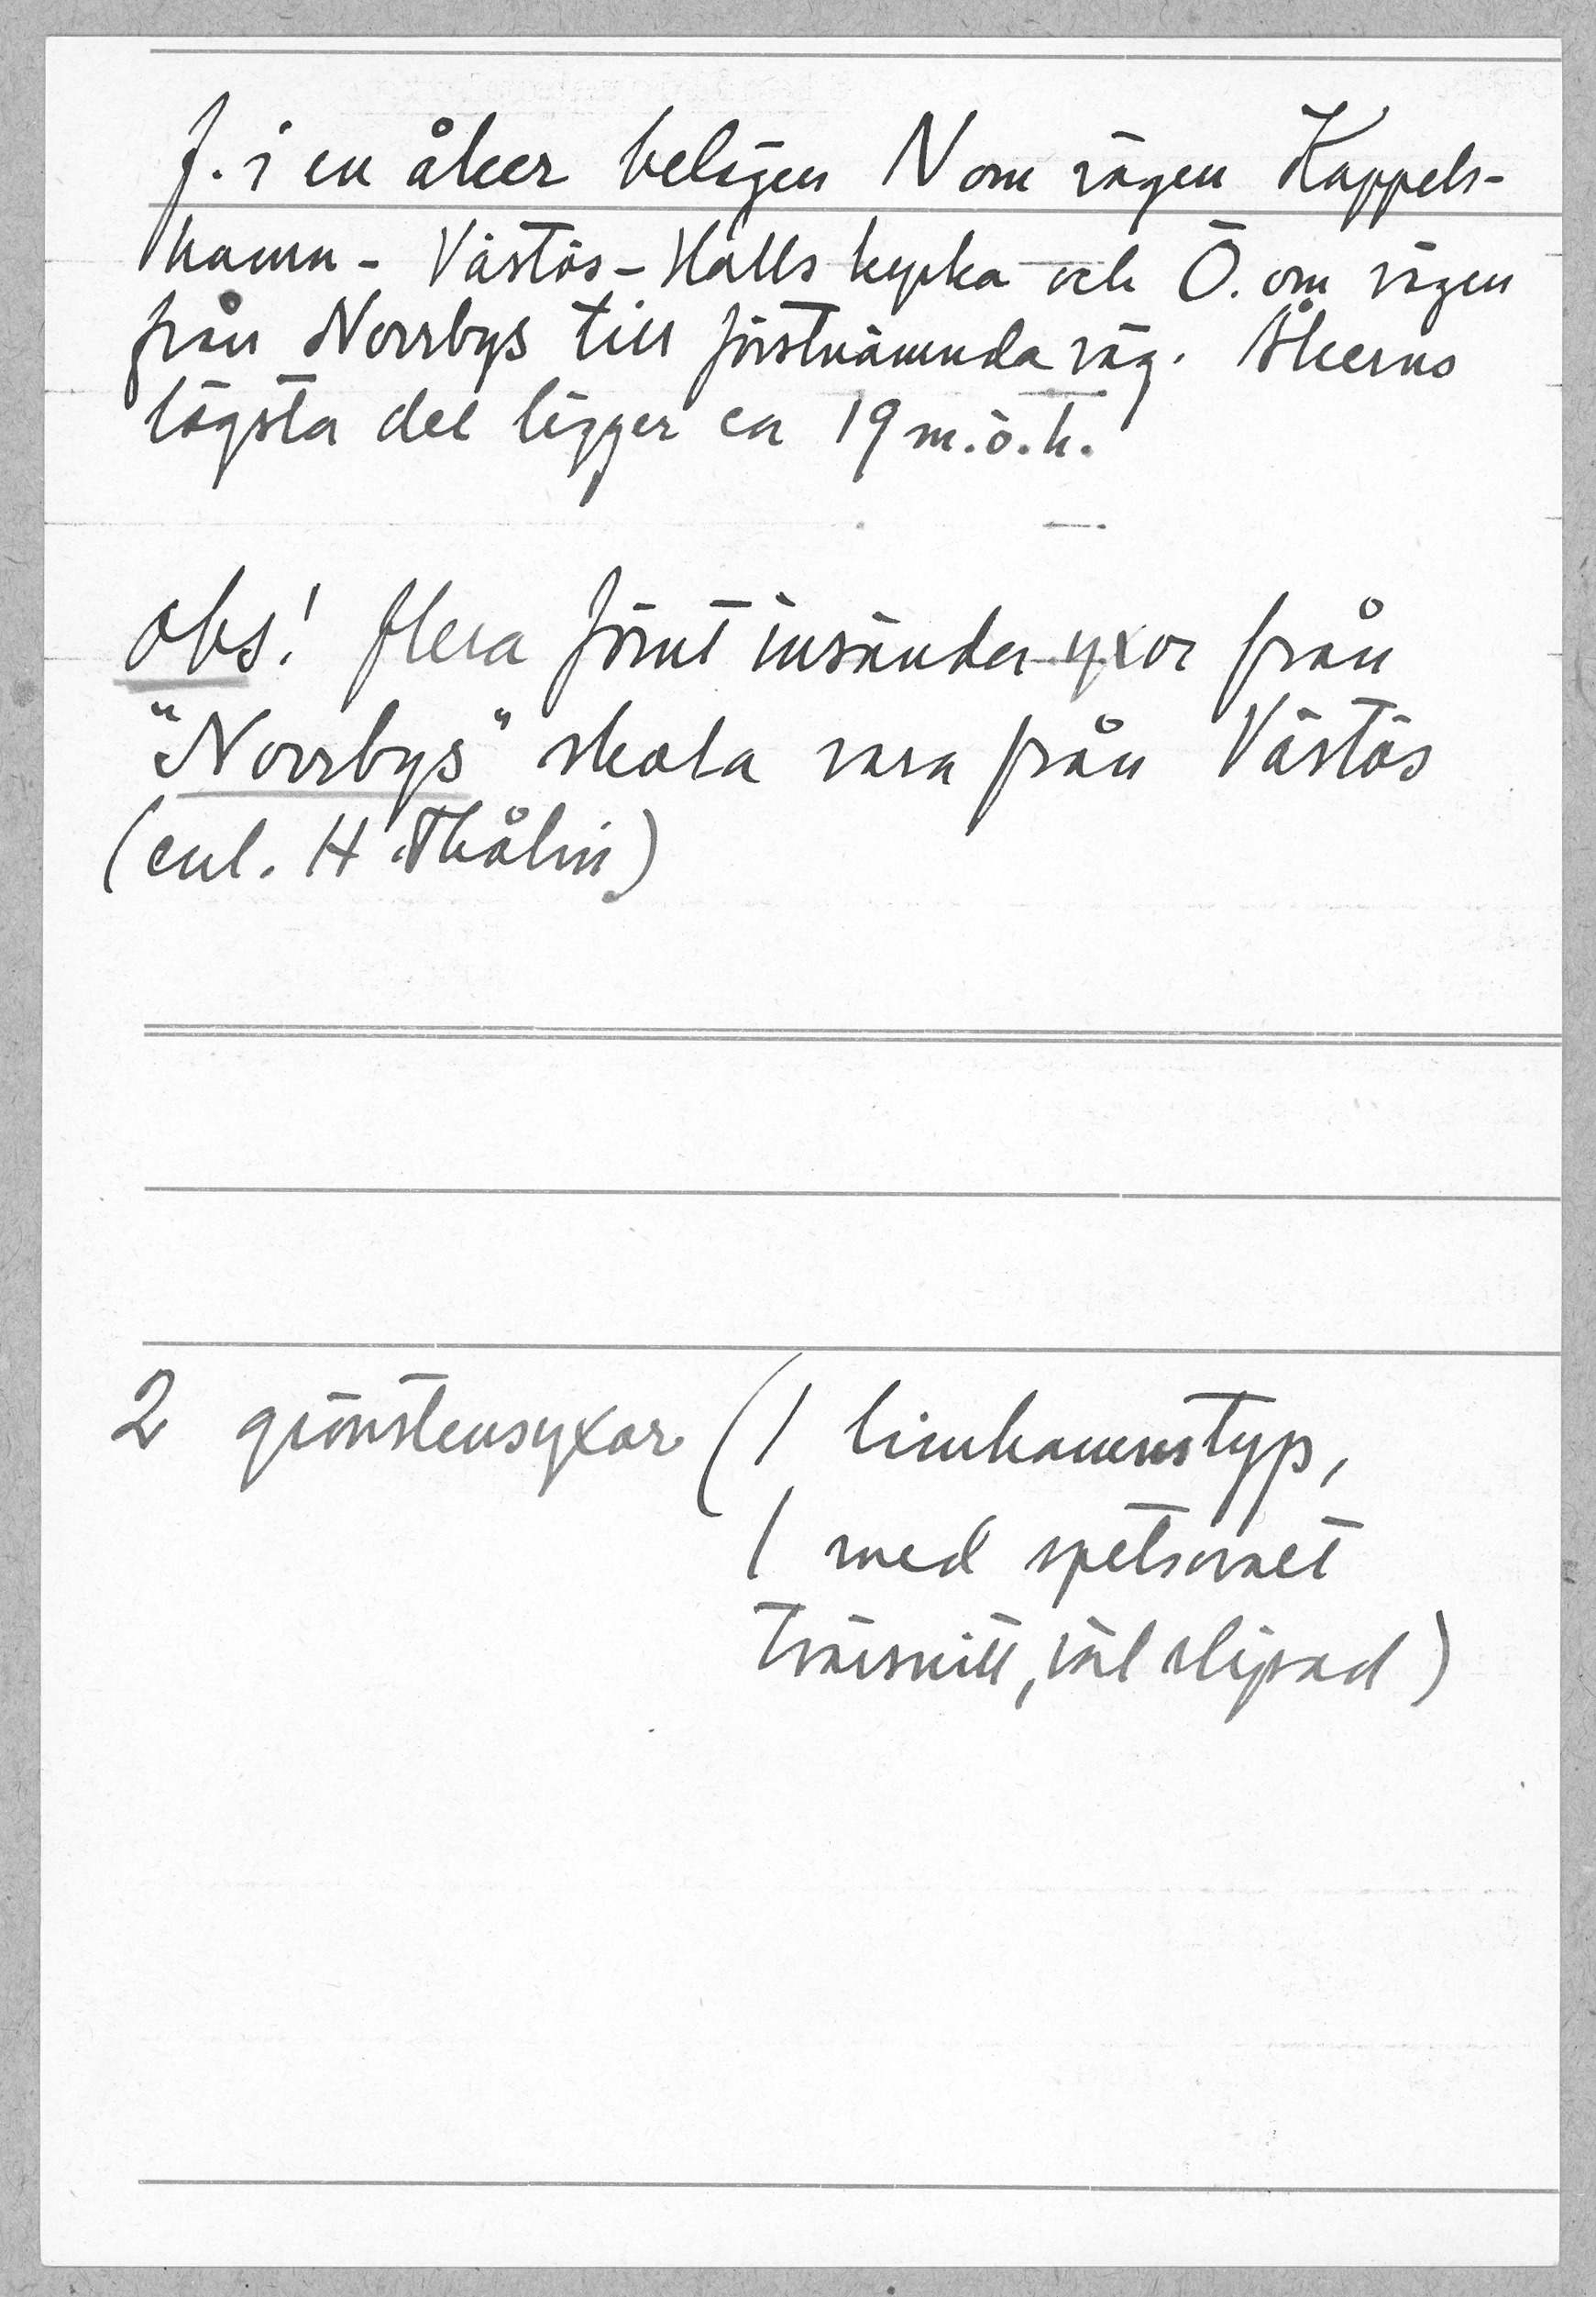 f. i en åker belägen N om vägen Kappels-
hamn - Västös - Halls kyrka och Ö. om vägen
från Norrbys till förstnämnda väg. Åkerns
lägsta del ligger ca 19 m.ö.h.
Obs! flera förut insända yxor från
"Norrbys" skola vara från Västös
(enl. H. Thålin)
2 grönstensyxor (1 limhamnstyp,
1 med spetsovalt
tvärsnitt, väl slipad)